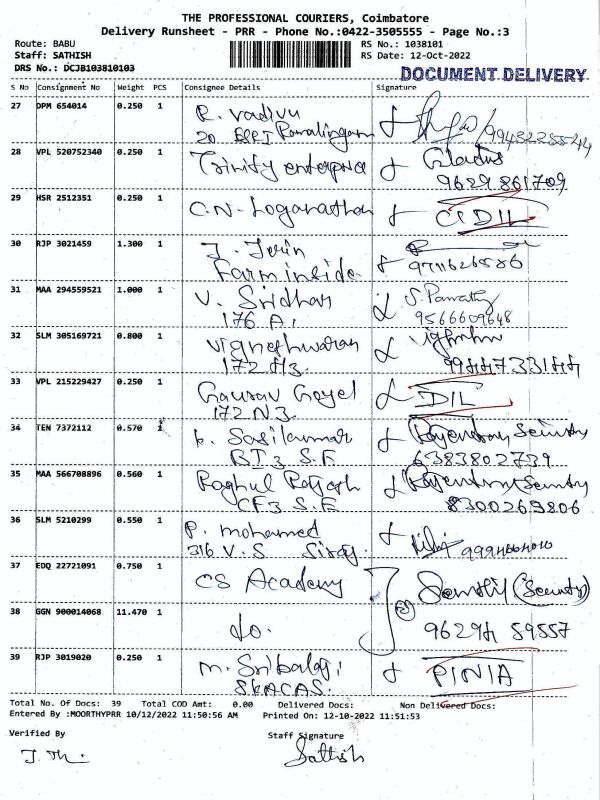 THE PROFESSIONAL COURIERS, Coimbatore
Delivery Runsheet - PRR - Phone No.:0422-3505555 - Page No.:3
Route: BABU RS No.: 1038101
Staff: SATHISH RS Date: 12-Oct-2022
DRS No.: DCJB103810103 DOCUMENT DELIVERY
S No Consignment No Weight PCS Consignee Details Signature
27 DPM 654014 0.250 1 R. vadivu
20 Ramalingam
28 VPL 520752340 0.250 1 Trinity enterprice Gladus
9629861709
29 HSR 2512351 0.250 1 C.N. Loganathan IDIL
30 RJP 3021459 1.300 1 J. Jerin
Farm inside. 9711626586
31 MAA 294559521 1.000 1 V. Sridhar
176 A1 9566609648
32 SLM 305169721 0.800 1 Vigneshwaran
172 H3
33 VPL 215229427 0.250 1 Gaurav Goyel IDIL
172 N3
34 TEN 7372112 0.570 1 K. Sasikumar Rajendran Security
BI3 S.F 6383802739
35 MAA 566708896 0.560 1 Raghul Rajesh Security
CF3 S.F 8300269806
36 SLM 5210299 0.550 1 P. mohamed
316 V.S Siraj.
37 EDQ 22721091 0.750 1 CS Academy Senthil (Security)
38 GGN 900014068 11.470 1 do. 96294 59557
39 RJP 3019020 0.250 1 M. Sribalaji PINIA
SKACAS.
Total No. Of Docs: 39 Total COD Amt: 0.00 Delivered Docs: Non Delivered Docs:
Entered By :MOORTHYPRR 10/12/2022 11:50:56 AM Printed On: 12-10-2022 11:51:53
Verified By Staff Signature
Sathish